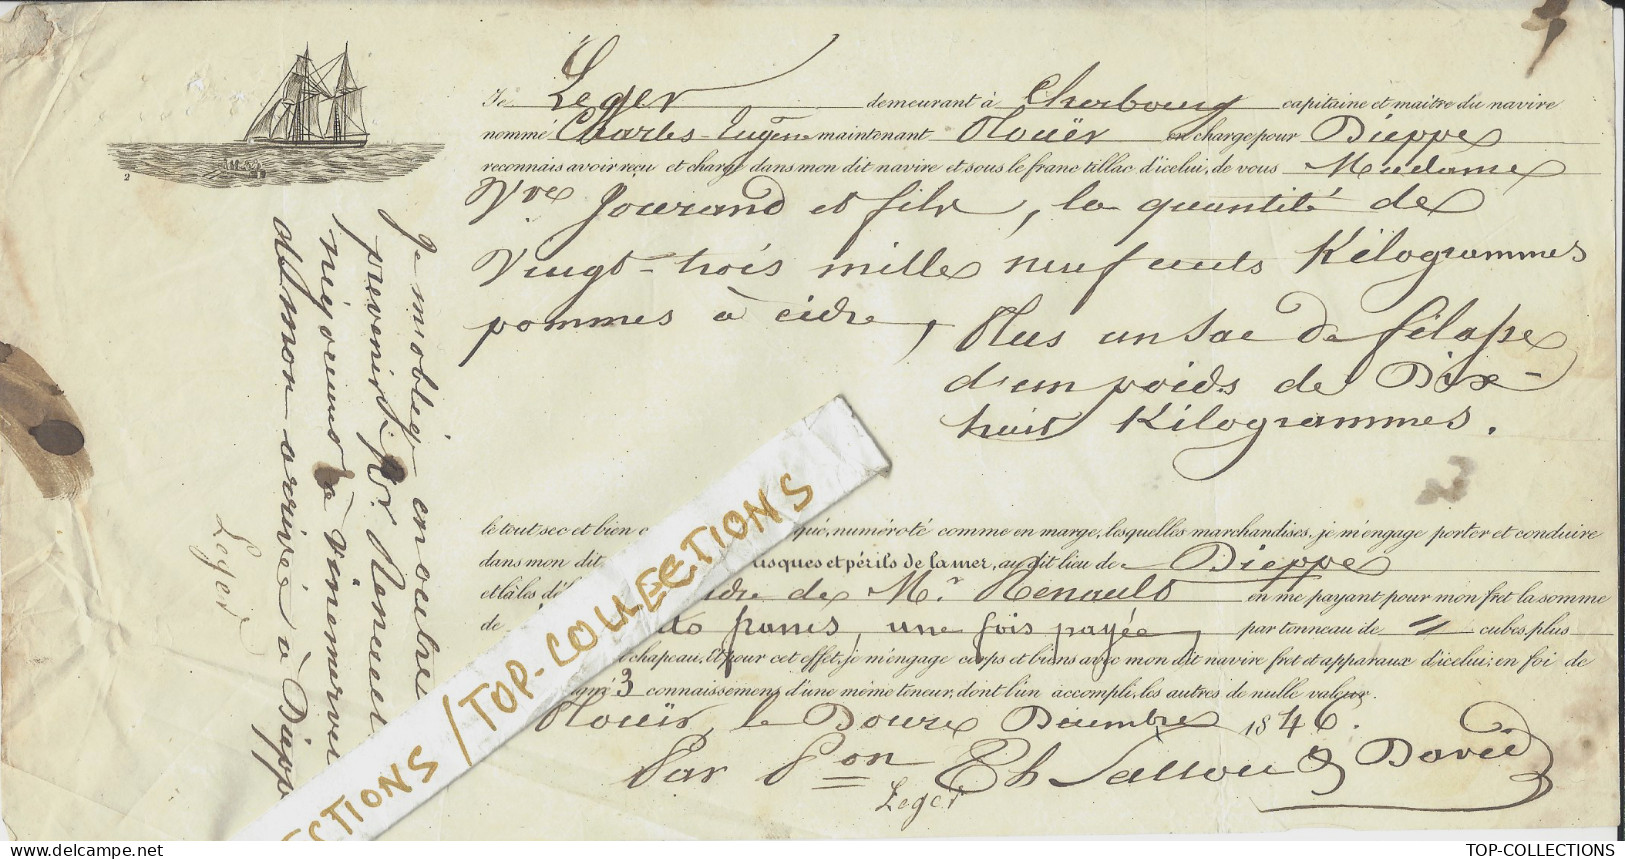 Je Leger demeurant à Cherbourg capitaine et maitre du navire
nommé Charles-Eugène maintenant Plouër en charge pour Dieppe
reconnais avoir reçu et chargé dans mon dit navire et sous le franc tillac d'icelui, de vous Madame
Vve Jourand et fils, la quantité de
Vingt-trois mille neuf cents Kilogrammes
pommes à cidre, Plus un sac de filasse
d'un poids de Dix-
huit Kilogrammes.
le tout sec et bien qué, numéroté comme en marge, lesquelles marchandises, je m'engage porter et conduire
dans mon dit risques et périls de la mer, au dit lieu de Dieppe
et là les dé dre de Mr Renault en me payant pour mon fret la somme
de francs, une fois payée, par tonneau de " cubes, plus
chapeau, Et pour cet effet, je m'engage corps et biens avec mon dit navire fret et apparaux d'icelui; en foi de
gné 3 connaissemens d'une même teneur, dont l'un accompli, les autres de nulle valeur.
Plouër, le Douze Décembre 1846.
Par Pon David
Leger
Je m'oblige en outre
prévenir Mr.
négociant à
de mon arrivée à Dieppe
Leger
2
ECTIONS / TOP-COLLECTIONS
TOP-COLLECTIONS